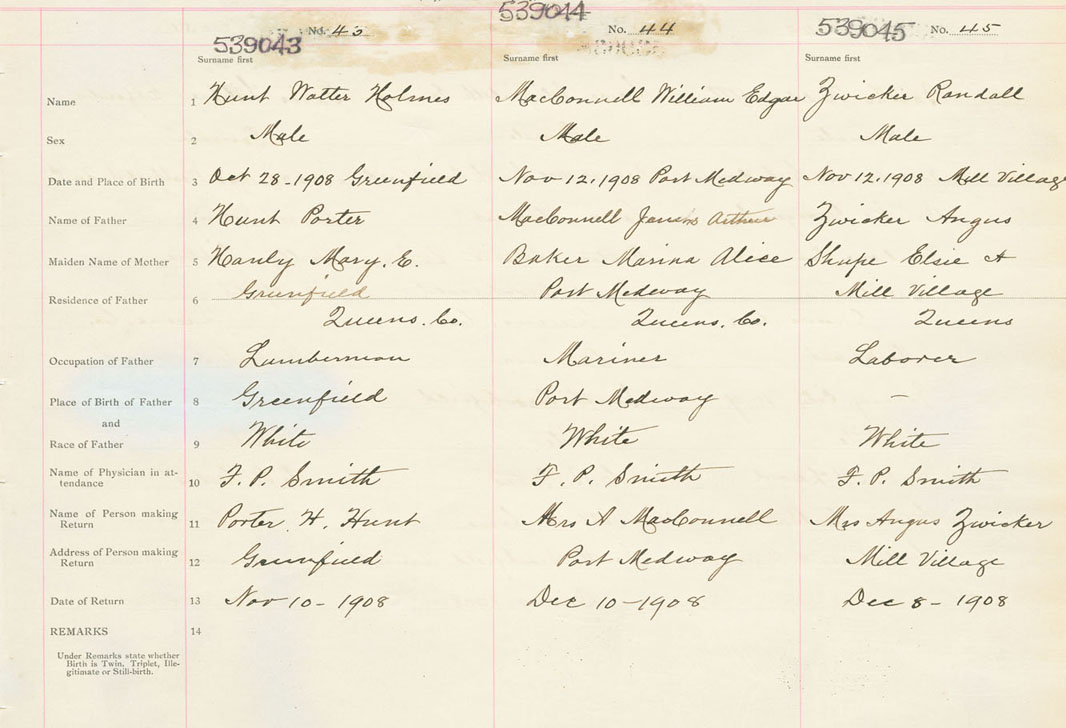 539043 No. 43 539044 No. 44 539045 No. 45
Surname first Surname first Surname first
Name 1 Hunt Walter Holmes MacConnell William Edgar Zwicker Randall
Sex 2 Male Male Male
Date and Place of Birth 3 Oct 28-1908 Greenfield Nov 12, 1908 Port Medway Nov 12, 1908 Mill Village
Name of Father 4 Hunt Porter MacConnell James Arthur Zwicker Angus
Maiden Name of Mother 5 Hanly Mary. E. Baker Marina Alice Shupe Elsie A
Residence of Father 6 Greenfield Port Medway Mill Village
Queens. Co. Queens. Co. Queens
Occupation of Father 7 Lumberman Mariner Laborer
Place of Birth of Father 8 Greenfield Port Medway —
and
Race of Father 9 White White White
Name of Physician in at-
tendance 10 F. P. Smith F. P. Smith F. P. Smith
Name of Person making
Return 11 Porter H. Hunt Mrs A MacConnell Mrs Angus Zwicker
Address of Person making
Return 12 Greenfield Port Medway Mill Village
Date of Return 13 Nov 10-1908 Dec 10-1908 Dec 8-1908
REMARKS 14
Under Remarks state whether
Birth is Twin, Triplet, Ille-
gitimate or Still-birth.